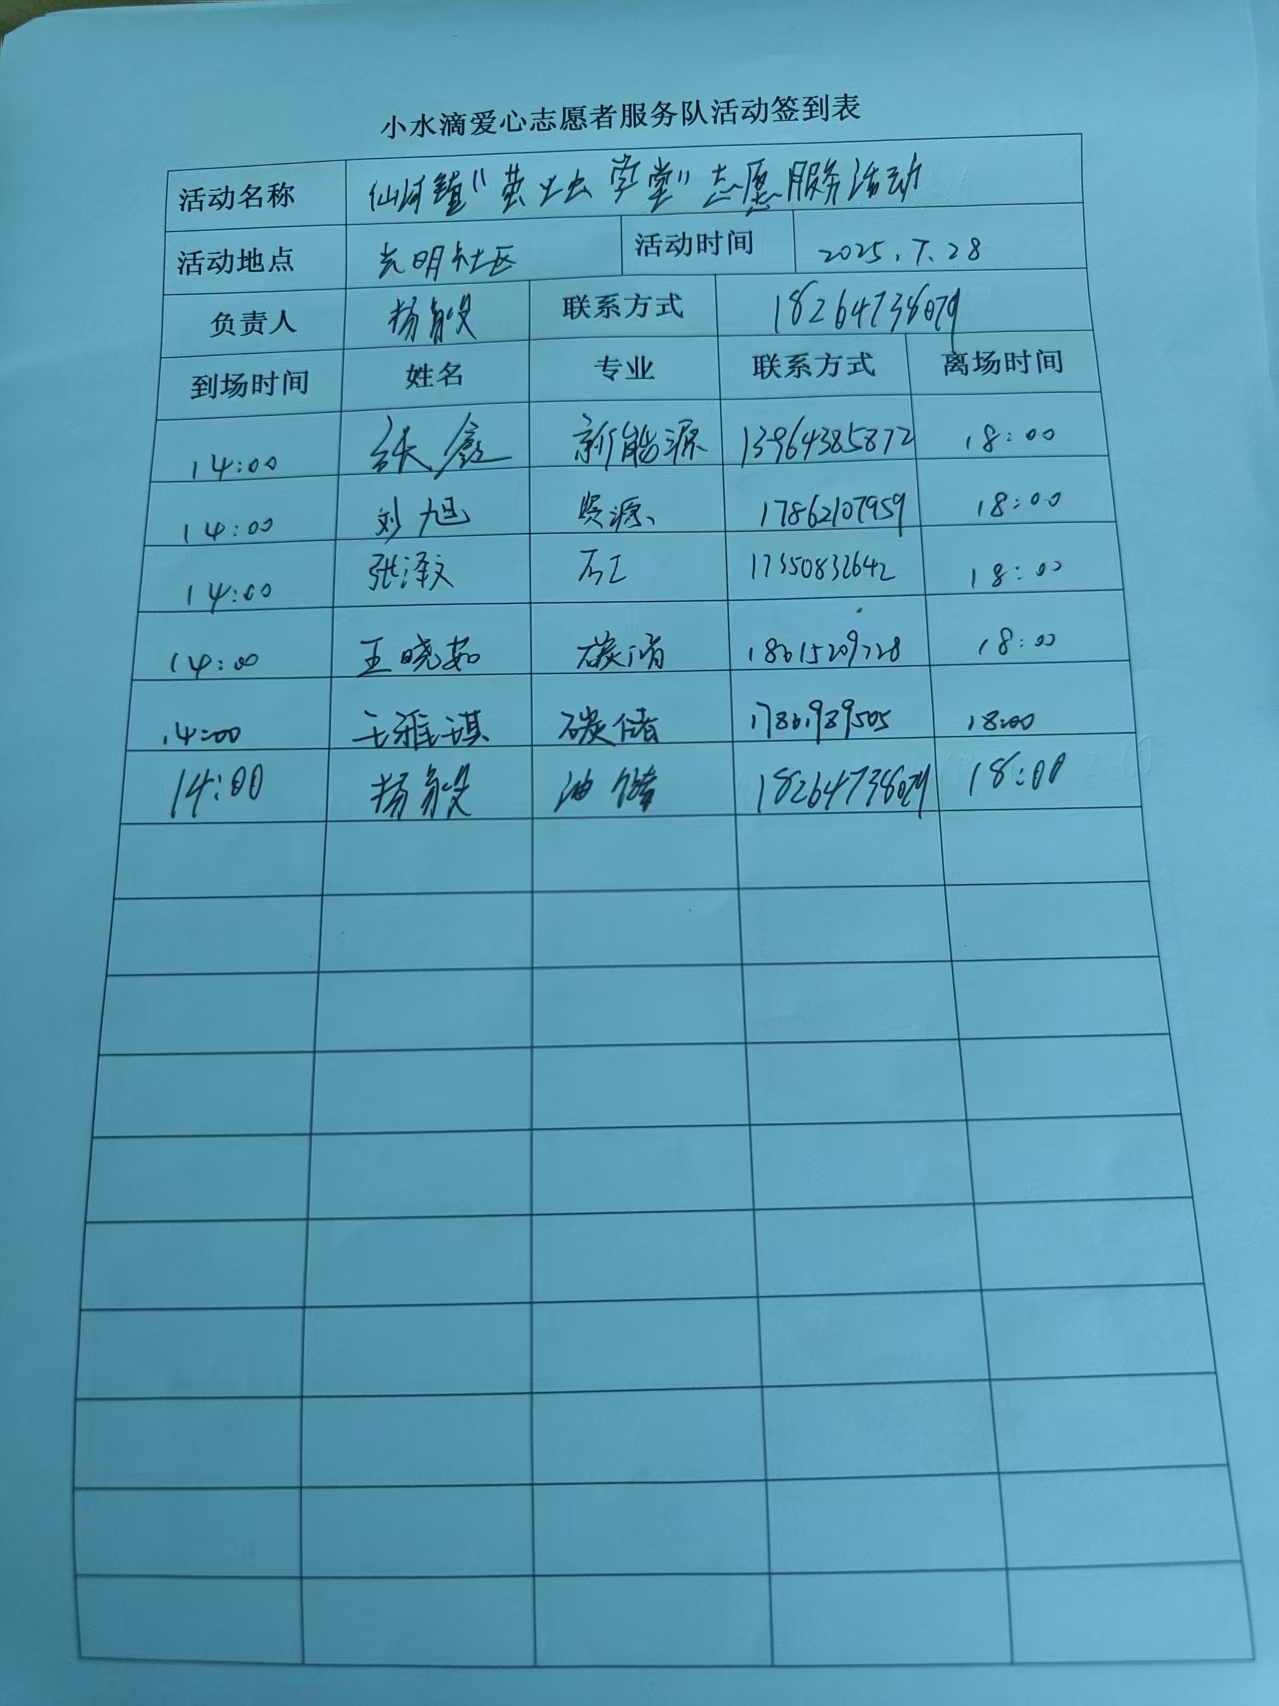 小水滴爱心志愿者服务队活动签到表
活动名称 仙河镇“萤火虫学堂”志愿服务活动
活动地点 光明社区 活动时间 2025.7.28
负责人 杨 联系方式 18264738079
到场时间 姓名 专业 联系方式 离场时间
14:00 张鑫 新能源 13964385872 18:00
14:00 刘旭 资源 17862107959 18:00
14:00 张泽文 石工 17350832642 18:00
14:00 王晓茹 碳储 18615209728 18:00
14:00 王雅琪 碳储 17861939505 18:00
14:00 杨 油储 18264738079 18:00